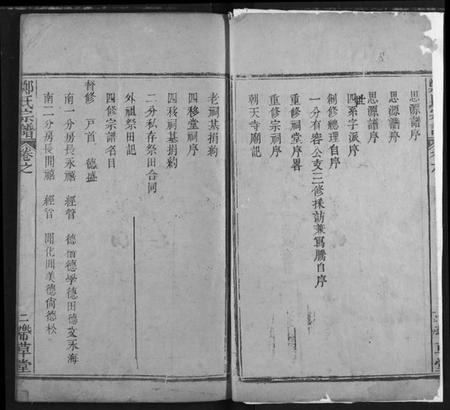 思源譜序
思源譜序
思源譜序
四系字派序
創修總理自序
一分有容公支三修採訪兼寫謄自序
重修祠堂序畧
重修宗祠序
朝天寺廟記
老祠基捐約
四移堂祠序
四移祠基捐約
二分私存祭田合同
外祖祭田記
四修宗譜名目
督修 戸首 德盛
南一分房長永禧 經管 德 德學德田德 永海
南二分房長開禧 經管 開化開美德尙德松
鄭氏宗譜 卷之
草堂